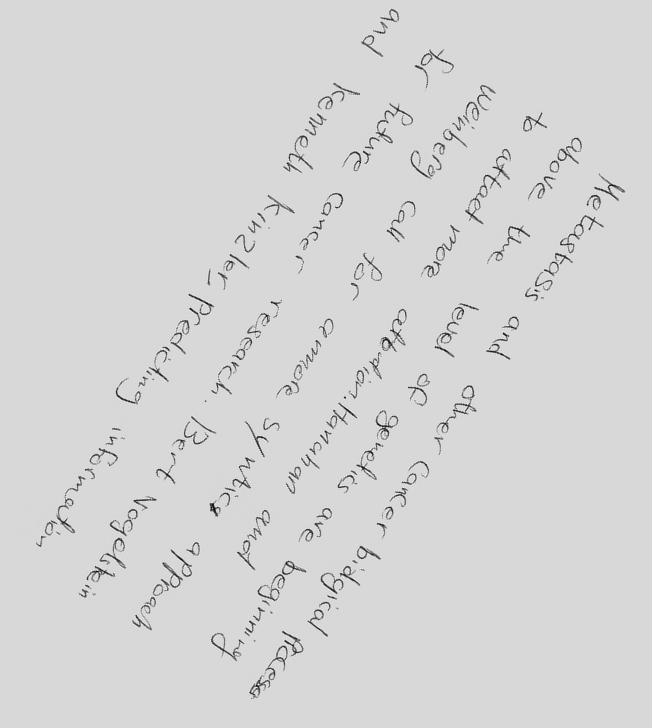 Metastasis and other cancer biolgical Process
above the level of genetics are beginning
to attact more attedion. Hanahan and
Weinberg call for amore syntics approach
for future cancer research. Bert Nogelstein
and kenneth kinzler_ predicting information